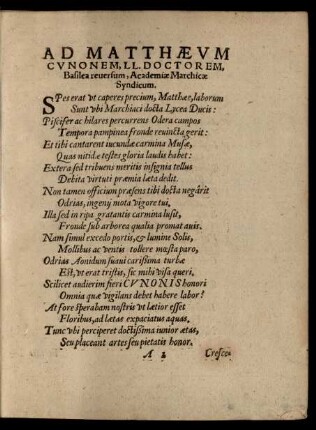 AD MATTHÆVM
CVNONEM, LL. DOCTOREM,
Basilea reuersum, Academiæ Marchicæ
Syndicum.
SPes erat vt caperes precium, Matthæe, laborum
Sunt vbi Marchiaci docta Lycea Ducis:
Piscifer ac hilares percurrens Odera campos
Tempora pampinea fronde reuincta gerit:
Et tibi cantarent iucundæ carmina Musæ,
Quas nitidæ testes gloria laudis habet:
Extera sed tribuens meritis insignia tellus
Debita virtuti præmia læta dedit.
Non tamen officium præsens tibi docta negârit
Odrias, ingenij mota vigore tui,
Illa sed in ripa gratantis carmina lusit,
Fronde sub arborea qualia promat auis.
Nam simul excedo portis, & lumine Solis,
Mollibus ac ventis tollere mœsta paro,
Odrias Aonidum suaui carissima turbæ
Est, vt erat tristis, sic mihi visa queri,
Scilicet audierim fieri CVNONIS honori
Omnia quæ vigilans debet habere labor?
At fore sperabam nostris vt lætior esset
Floribus, ad lætas expaciatus aquas,
Tunc vbi perciperet doctißima iunior ætas,
Seu placeant artes seu pietatis honor.
A 2 Cresce-